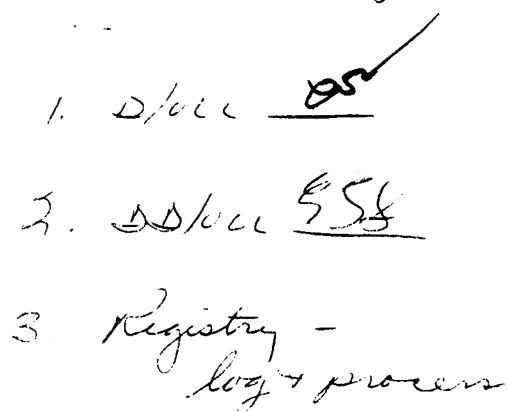 1. D/OCC
2. DD/OCC
3 Registry -
log & process